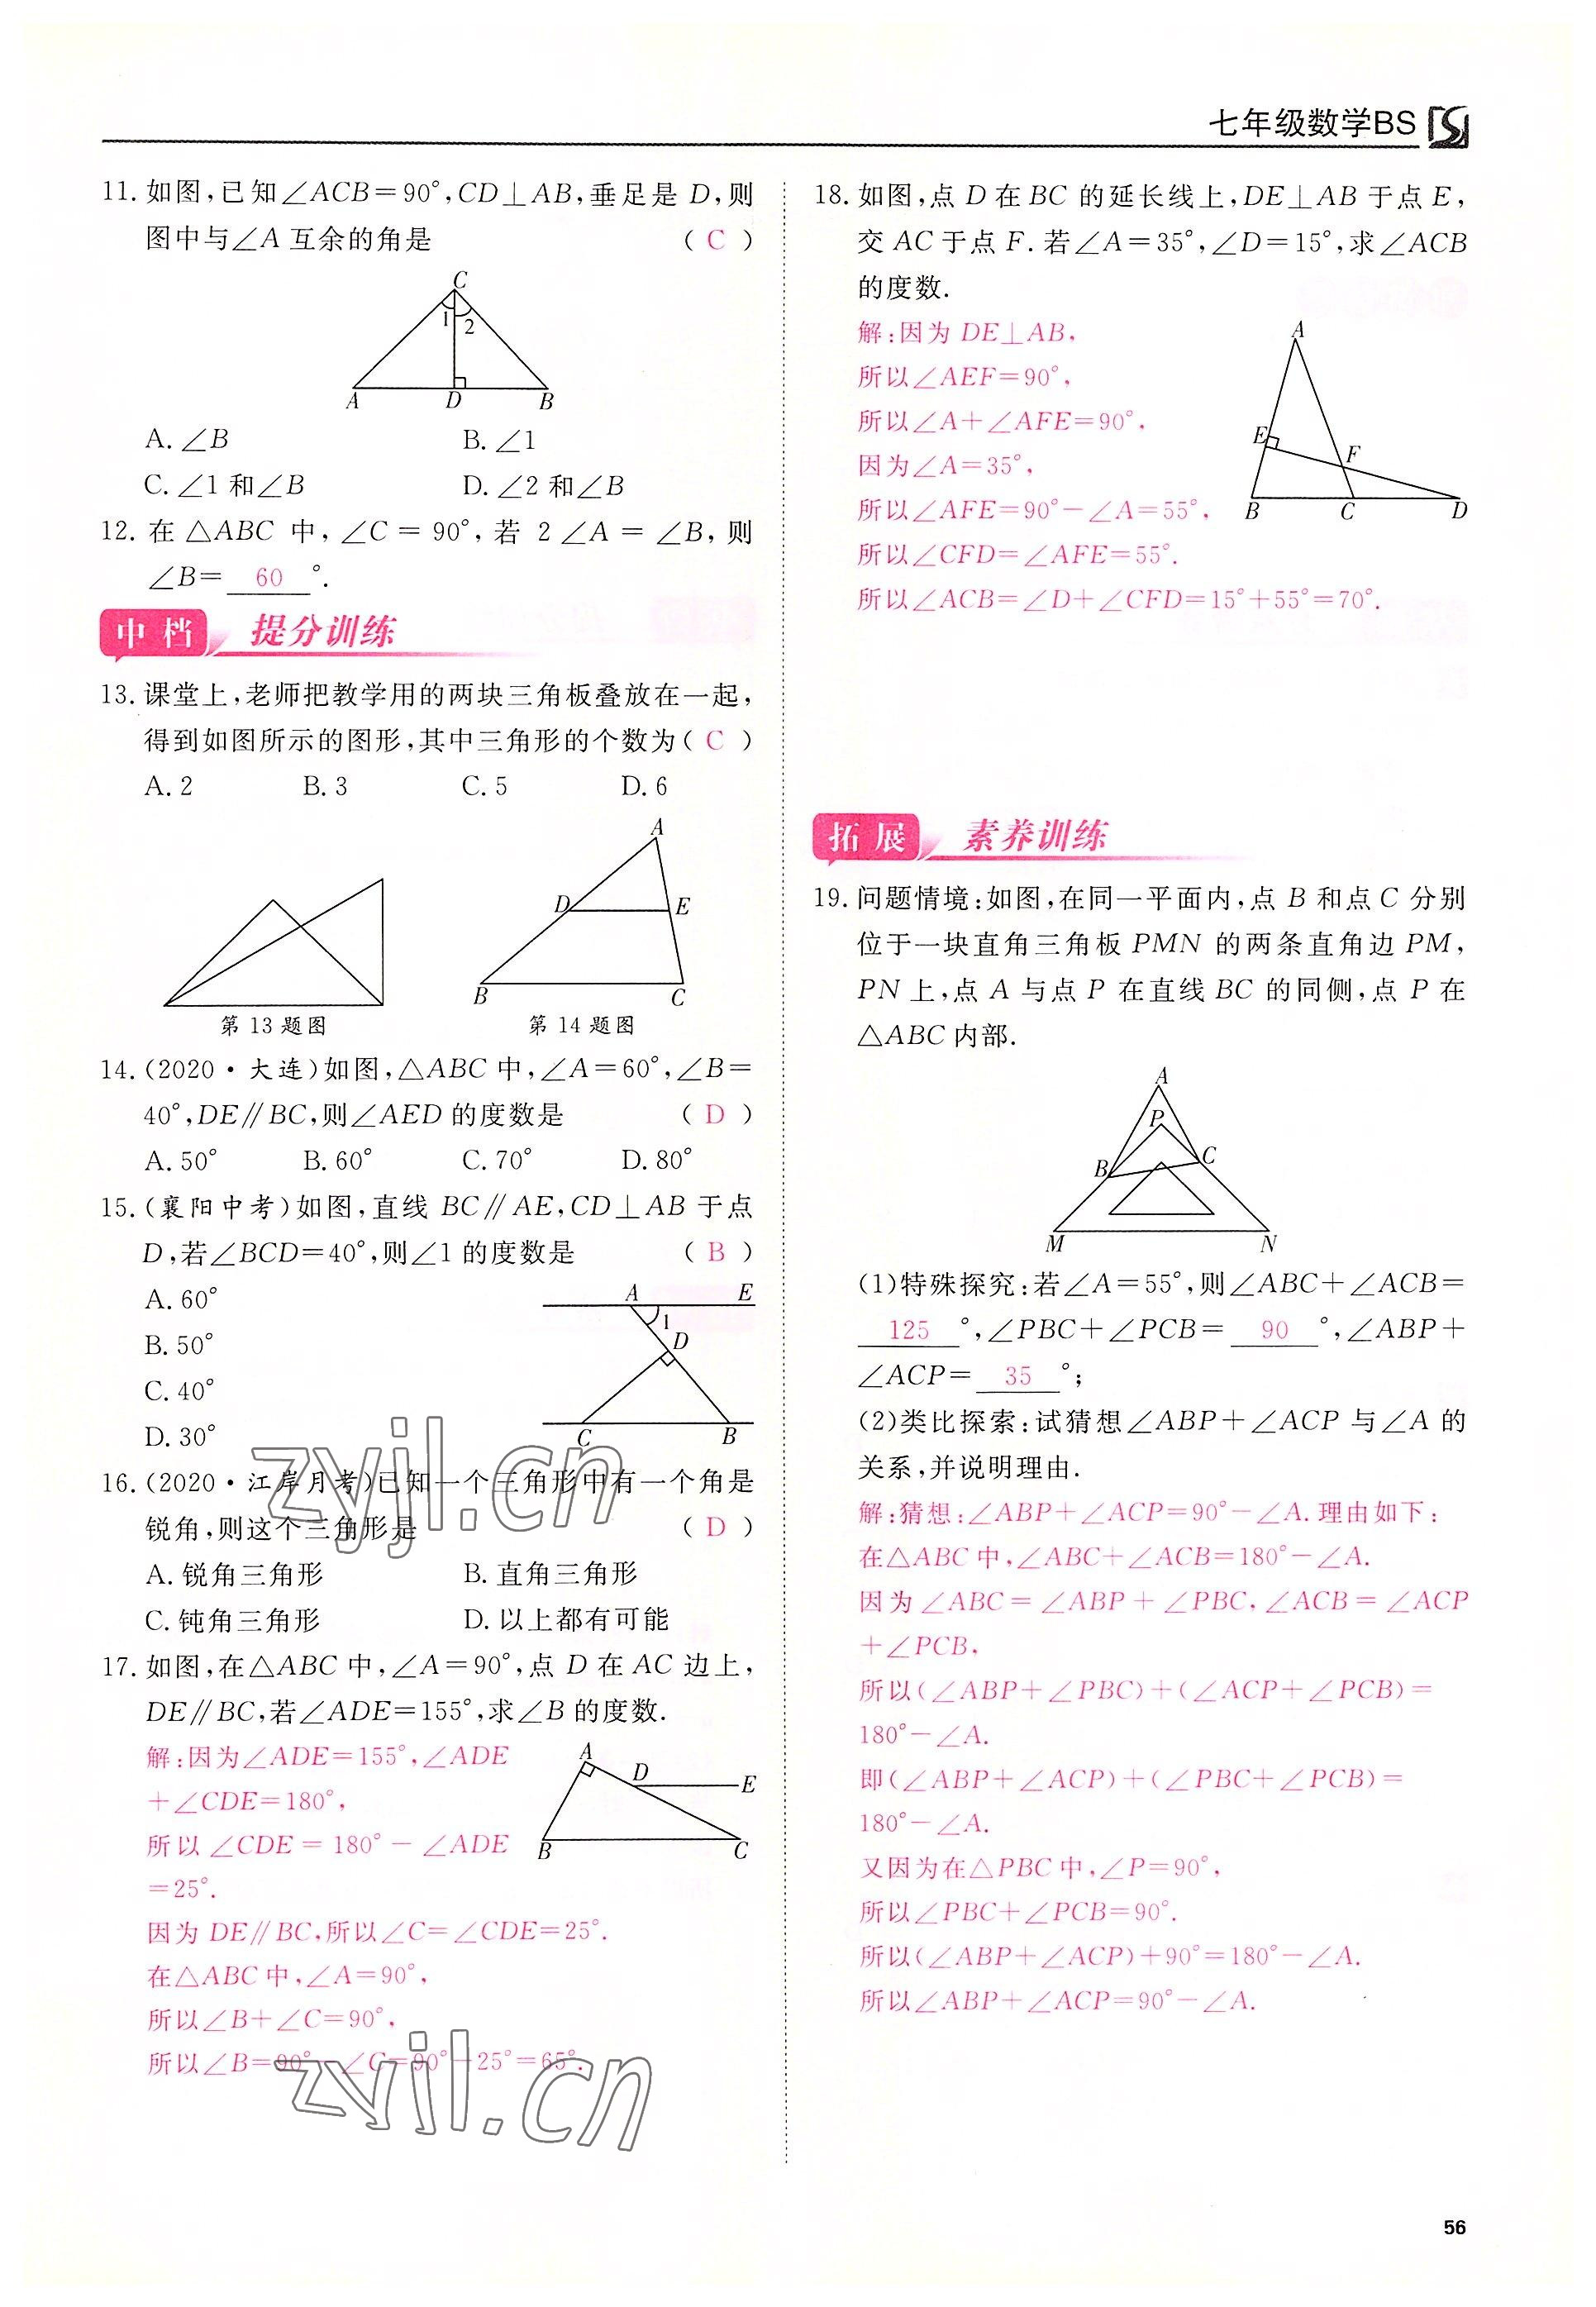 七年级数学BS
11. 如图,已知∠ACB=90°,CD⊥AB,垂足是 D,则
图中与∠A 互余的角是 ( C )
C
1
2
A
D
B
A. ∠B B. ∠1
C. ∠1 和∠B D. ∠2 和∠B
12. 在 △ABC 中, ∠C = 90°, 若 2 ∠A = ∠B, 则
∠B= 60 °.
中 档 提分训练
13. 课堂上,老师把教学用的两块三角板叠放在一起,
得到如图所示的图形,其中三角形的个数为( C )
A. 2 B. 3 C. 5 D. 6
A
D
E
B
C
第 13 题图 第 14 题图
14. (2020·大连)如图,△ABC 中,∠A=60°,∠B=
40°,DE∥BC,则∠AED 的度数是 ( D )
A. 50° B. 60° C. 70° D. 80°
15. (襄阳中考)如图,直线 BC∥AE,CD⊥AB 于点
D,若∠BCD=40°,则∠1 的度数是 ( B )
A. 60°
B. 50°
C. 40°
D. 30°
A
E
1
D
C
B
16. (2020·江岸月考)已知一个三角形中有一个角是
锐角,则这个三角形是 ( D )
A. 锐角三角形 B. 直角三角形
C. 钝角三角形 D. 以上都有可能
17. 如图,在△ABC 中,∠A=90°,点 D 在 AC 边上,
DE∥BC,若∠ADE=155°,求∠B 的度数.
解:因为∠ADE=155°,∠ADE
+∠CDE=180°,
所以 ∠CDE = 180° − ∠ADE
=25°.
因为 DE∥BC,所以∠C=∠CDE=25°.
在△ABC 中,∠A=90°,
所以∠B+∠C=90°,
所以∠B=90°−∠C=90°−25°=65°.
A
D
E
B
C
zyjl.cn
zyjl.cn
18. 如图,点 D 在 BC 的延长线上,DE⊥AB 于点 E,
交 AC 于点 F. 若∠A=35°,∠D=15°,求∠ACB
的度数.
解:因为 DE⊥AB,
所以∠AEF=90°,
所以∠A+∠AFE=90°,
因为∠A=35°,
所以∠AFE=90°−∠A=55°,
所以∠CFD=∠AFE=55°.
所以∠ACB=∠D+∠CFD=15°+55°=70°.
A
E
F
B
C
D
拓 展 素养训练
19. 问题情境:如图,在同一平面内,点 B 和点 C 分别
位于一块直角三角板 PMN 的两条直角边 PM,
PN 上,点 A 与点 P 在直线 BC 的同侧,点 P 在
△ABC 内部.
A
P
B
C
M
N
(1)特殊探究:若∠A=55°,则∠ABC+∠ACB=
125 °,∠PBC+∠PCB= 90 °,∠ABP+
∠ACP= 35 °;
(2)类比探索:试猜想∠ABP+∠ACP 与∠A 的
关系,并说明理由.
解:猜想:∠ABP+∠ACP=90°−∠A.理由如下:
在△ABC 中,∠ABC+∠ACB=180°−∠A.
因为 ∠ABC = ∠ABP + ∠PBC, ∠ACB = ∠ACP
+∠PCB,
所以(∠ABP+∠PBC)+(∠ACP+∠PCB)=
180°−∠A.
即(∠ABP+∠ACP)+(∠PBC+∠PCB)=
180°−∠A.
又因为在△PBC 中,∠P=90°,
所以∠PBC+∠PCB=90°.
所以(∠ABP+∠ACP)+90°=180°−∠A.
所以∠ABP+∠ACP=90°−∠A.
56